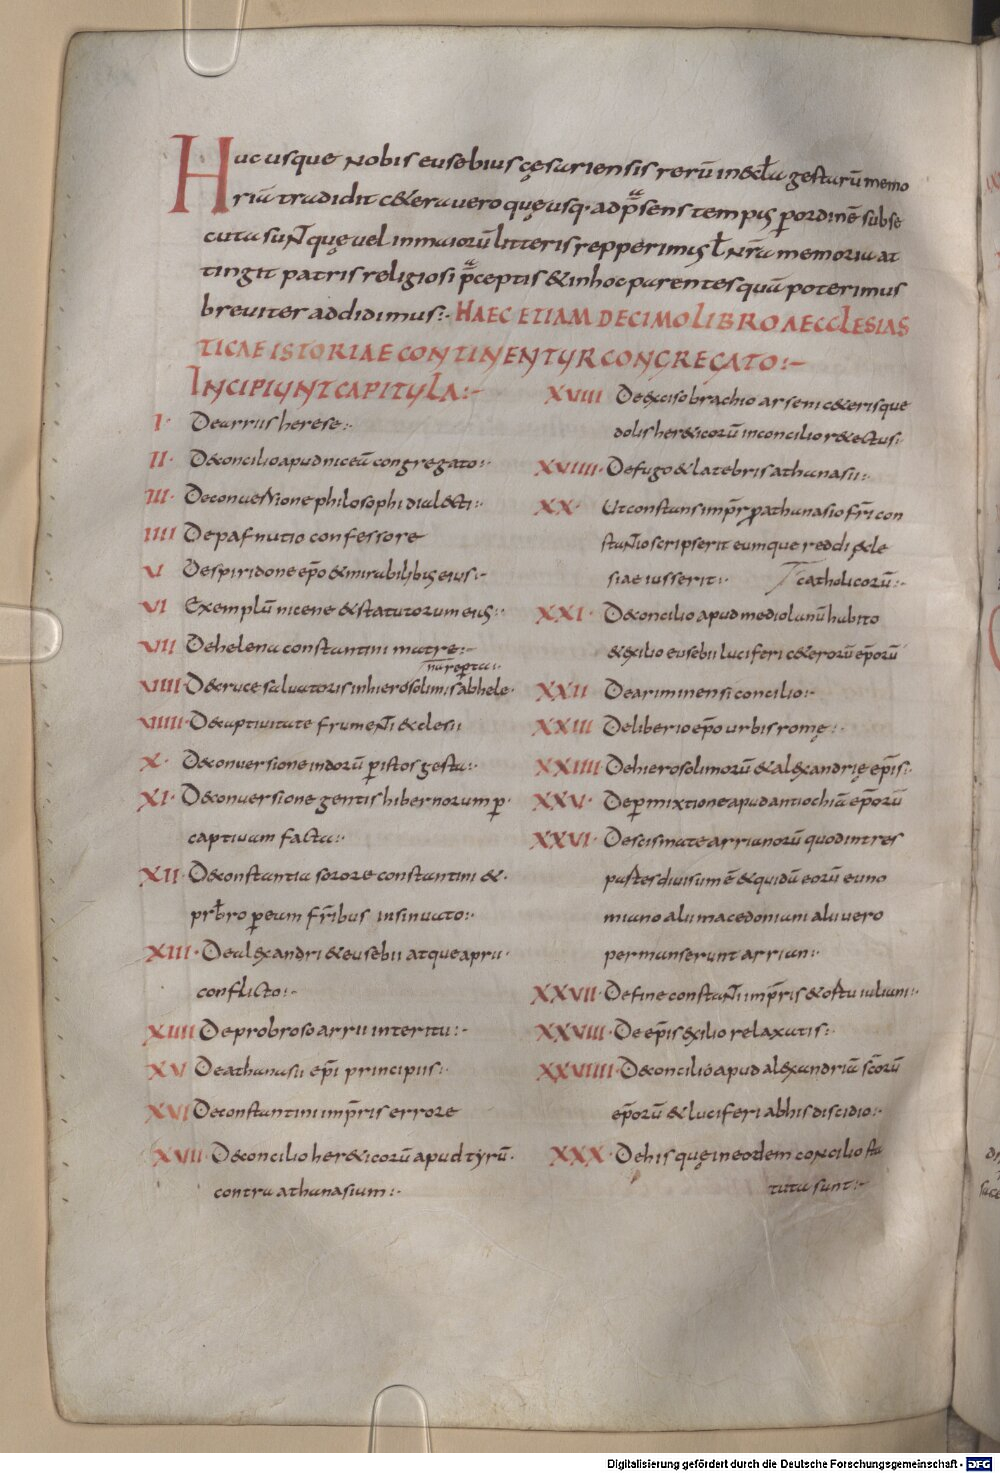 Huc usque nobis eusebius cęsariensis rerū in ęcla gestarū memo
riā tradidit c&era uero quę usq· ad p̄sens tempus p ordinē subse
cuta suNt quę uel in maiorū litteris repperimus ł Nr̄a memoria at
tingit patris religiosi p̄ceptis & in hoc parentes quā poterimus
breuiter addidimus:· HAEC ETIAM DECIMO LIBRO AECCLESIAS
TICAE ISTORIAE CONTINENTUR CONGREGATO:–
INCIPIUNT CAPITULA:–
I· De arrii herese:·
II· De concilio apud niceū congregato:·
III· De conuersione philosophi dialecti:·
IIII De pafnutio confessore
V De spiridone ep̄o & mirabilibus eius:·
VI Exemplū nicene & statutorum eius:·
VII De helena constantini matre:–
na reperta:·
VIIII De cruce saluatoris in hierosolimis ab hele·
VIIII· De captiuitate frumeNti & clesii
X· De conuersione indorū p istos gesta:·
XI· De conuersione gentis hibernorum p·
captiuam facta:·
XII· De constantia sorore constantini &·
prb̄ro p eum fr̄ibus insinuato:·
XIII· De alexandri & eusebii atque aprii·
conflicto:·
XIIII De probroso arrii interitu:·
XV De athanasii ep̄i principiis:·
XVI De constantini imp̄ris errore
XVII· De concilio her&icorū apud tyrū·
contra athanasium:·
XVIII De exciso brachio arseni c&erisque
dolis her&icorū in concilio rętectus:·
XVIIII· De fugo & latebris athanasii:·
XX· Ut constans imp̄r p athanasio fr̄i con
staNtio scripserit eumque reddi ęcle
siae iusserit:· catholicorū:·
XXI· De concilio apud mediolanū habito
& exilio eusebii luciferi c&erorū ep̄orū
XXII De ariminensi concilio:·
XXIII De liberio ep̄o urbis romę:·
XXIIII De hierosolimorū & alexandrię ep̄is:·
XXV· De permixtione apud antiochiā ep̄orū
XXVI· De scismate arrianorū quod in tres
partes diuisum ē & quidā eorū euno
miano alii macedoniani alii uero
permanserunt arriani:·
XXVII· De fine constaNti imp̄ris & ostu iuliani:·
XXVIII· De ep̄is exilio relaxatis:·
XXVIIII· De concilio apud alexandriā sc̄orū
ep̄orū & luciferi ab his discidio:·
XXX· De his quę in eodem concilio sta
tuta sunt:·
Digitalisierung gefördert durch die Deutsche Forschungsgemeinschaft - DFG